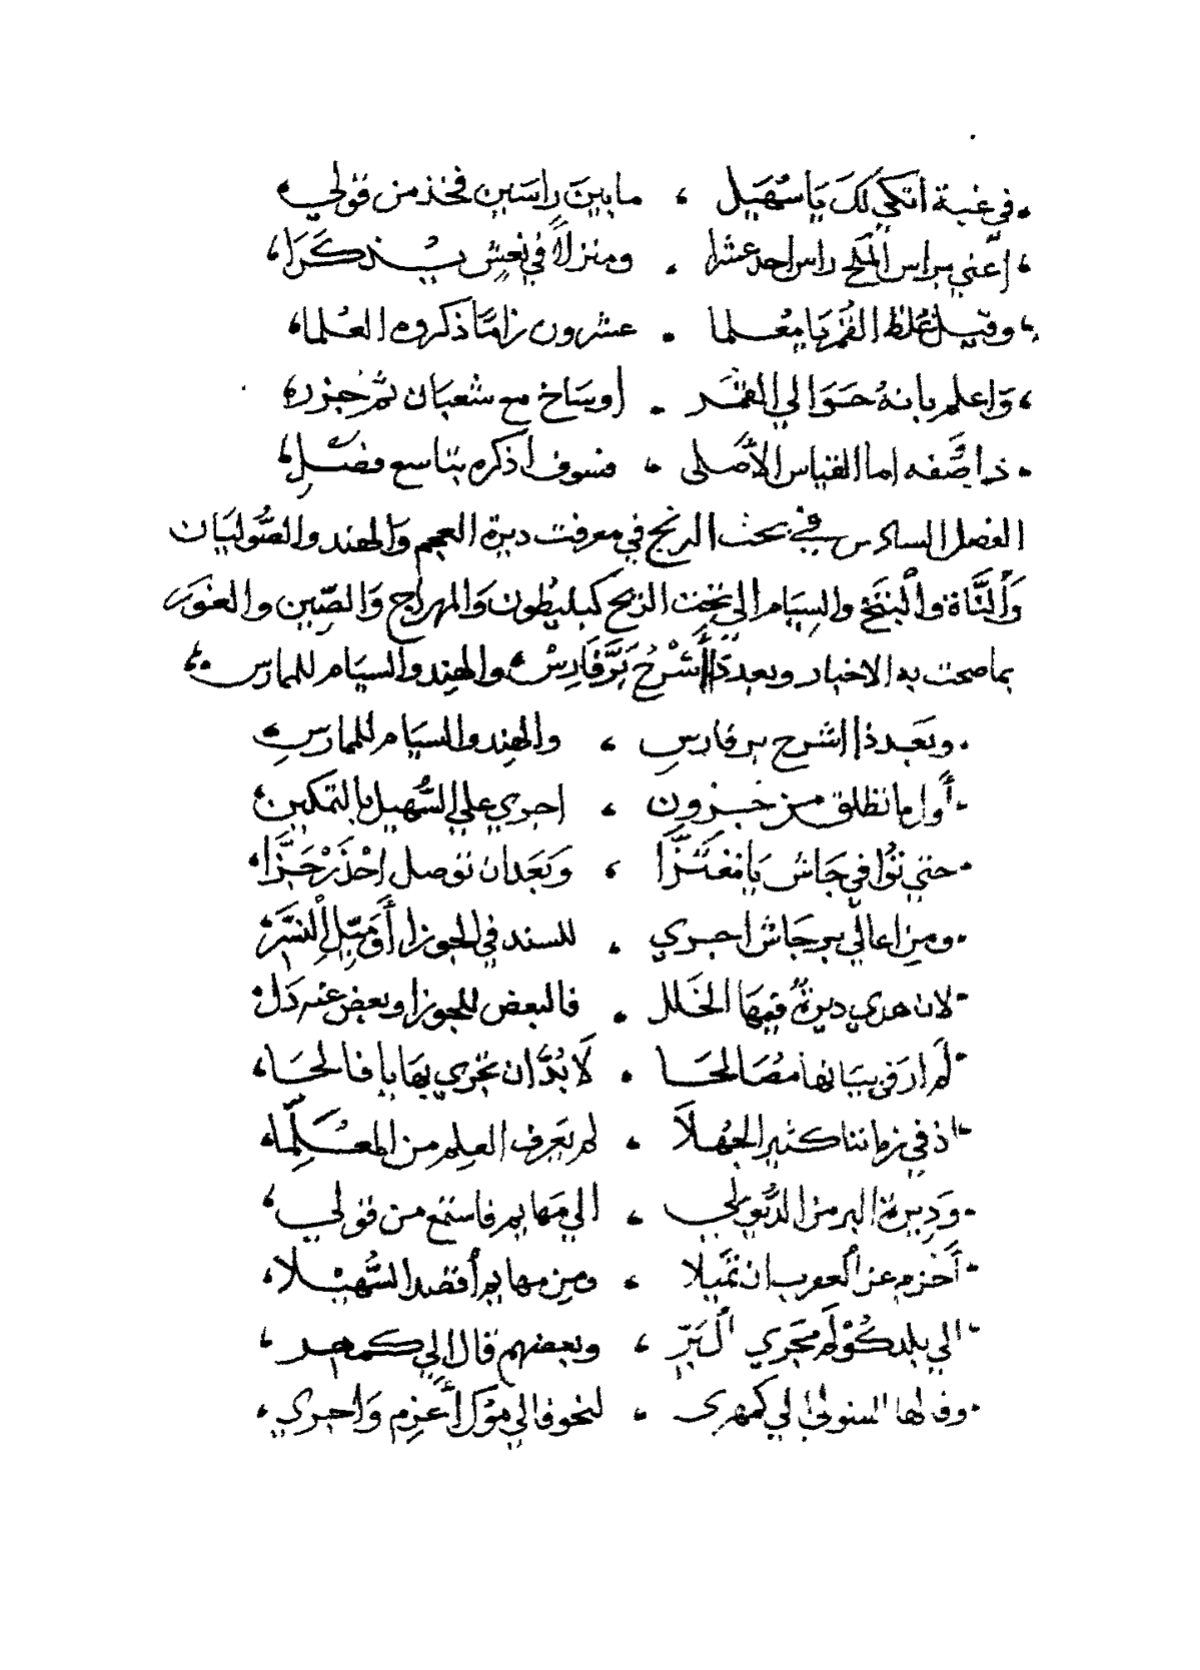 في غبة اتكي لك يَا سُهَيل ، ما بينَ راسَين فخذ من قولي
اعني براس الملح راس احد عشرا . ومنزلاً في نعش يُذكَرَا
وقيل غلظ القُمر يَا مُعلما . عشرون زامًا ذكروه العُلما
وَاعلم بانهُ حَوَالي القمَر . اوسَاخ مع شعبَان ثم جزره
ذا صفه اما القياس الأصلي ، فسوف اذكره بتاسع فصل
الفصل السادس في بحث الرنج في معرفت ديرة العجم وَالهند والصُّوليَان
وَالنَّاة والْبَنج والسِيَام الي تحت الريح كبليطُون وَالمهراج وَالصّين والغور
بما صحت به الاخبار وبعد ذا أشْرحُ بَرَّ فَارِسْ والهند والسيَام للممارس
وبَعد ذا اشرح بر فارسِ ، والهِند والسيَام للممارسِ
أول ما تطلق من جرون ، اجري علي السُّهيل بالتمكين
حتي توُا في جَاش يَا مغتَزَّا ، وَبَعَد ان توصل احْذَرْ حَزَّا
ومن اعالي بر جاش اجري . للسند في الجوزا أَو مَيِّل النسَّر
لان هدي ديرةٌ فيهَا الخَلل . فالبعض للجوزا وبعض عنه دَل
لَم ار في بيَانها مصَالحَا . لَا بُدَّ ان تجري بهَا يا فالحَا
اذ في زماننا كثير الجُهلَا ، لم يَعرف العِلم من المعُلِّما
وَديرة البر من الدَّيولي ، الي مَهايم فاستمع من قولي
أَخزم عن العرب ان تَميلا ، ومِن مهايم أقصد السُّهيْلا
الي بلد كُوْلَم مجَري الْبَرِّ ، وبعضهم قال الي كمهر
وقالها السولي الي كمهري ، لنحو فالي هَوَّل أَعزم وَاجري